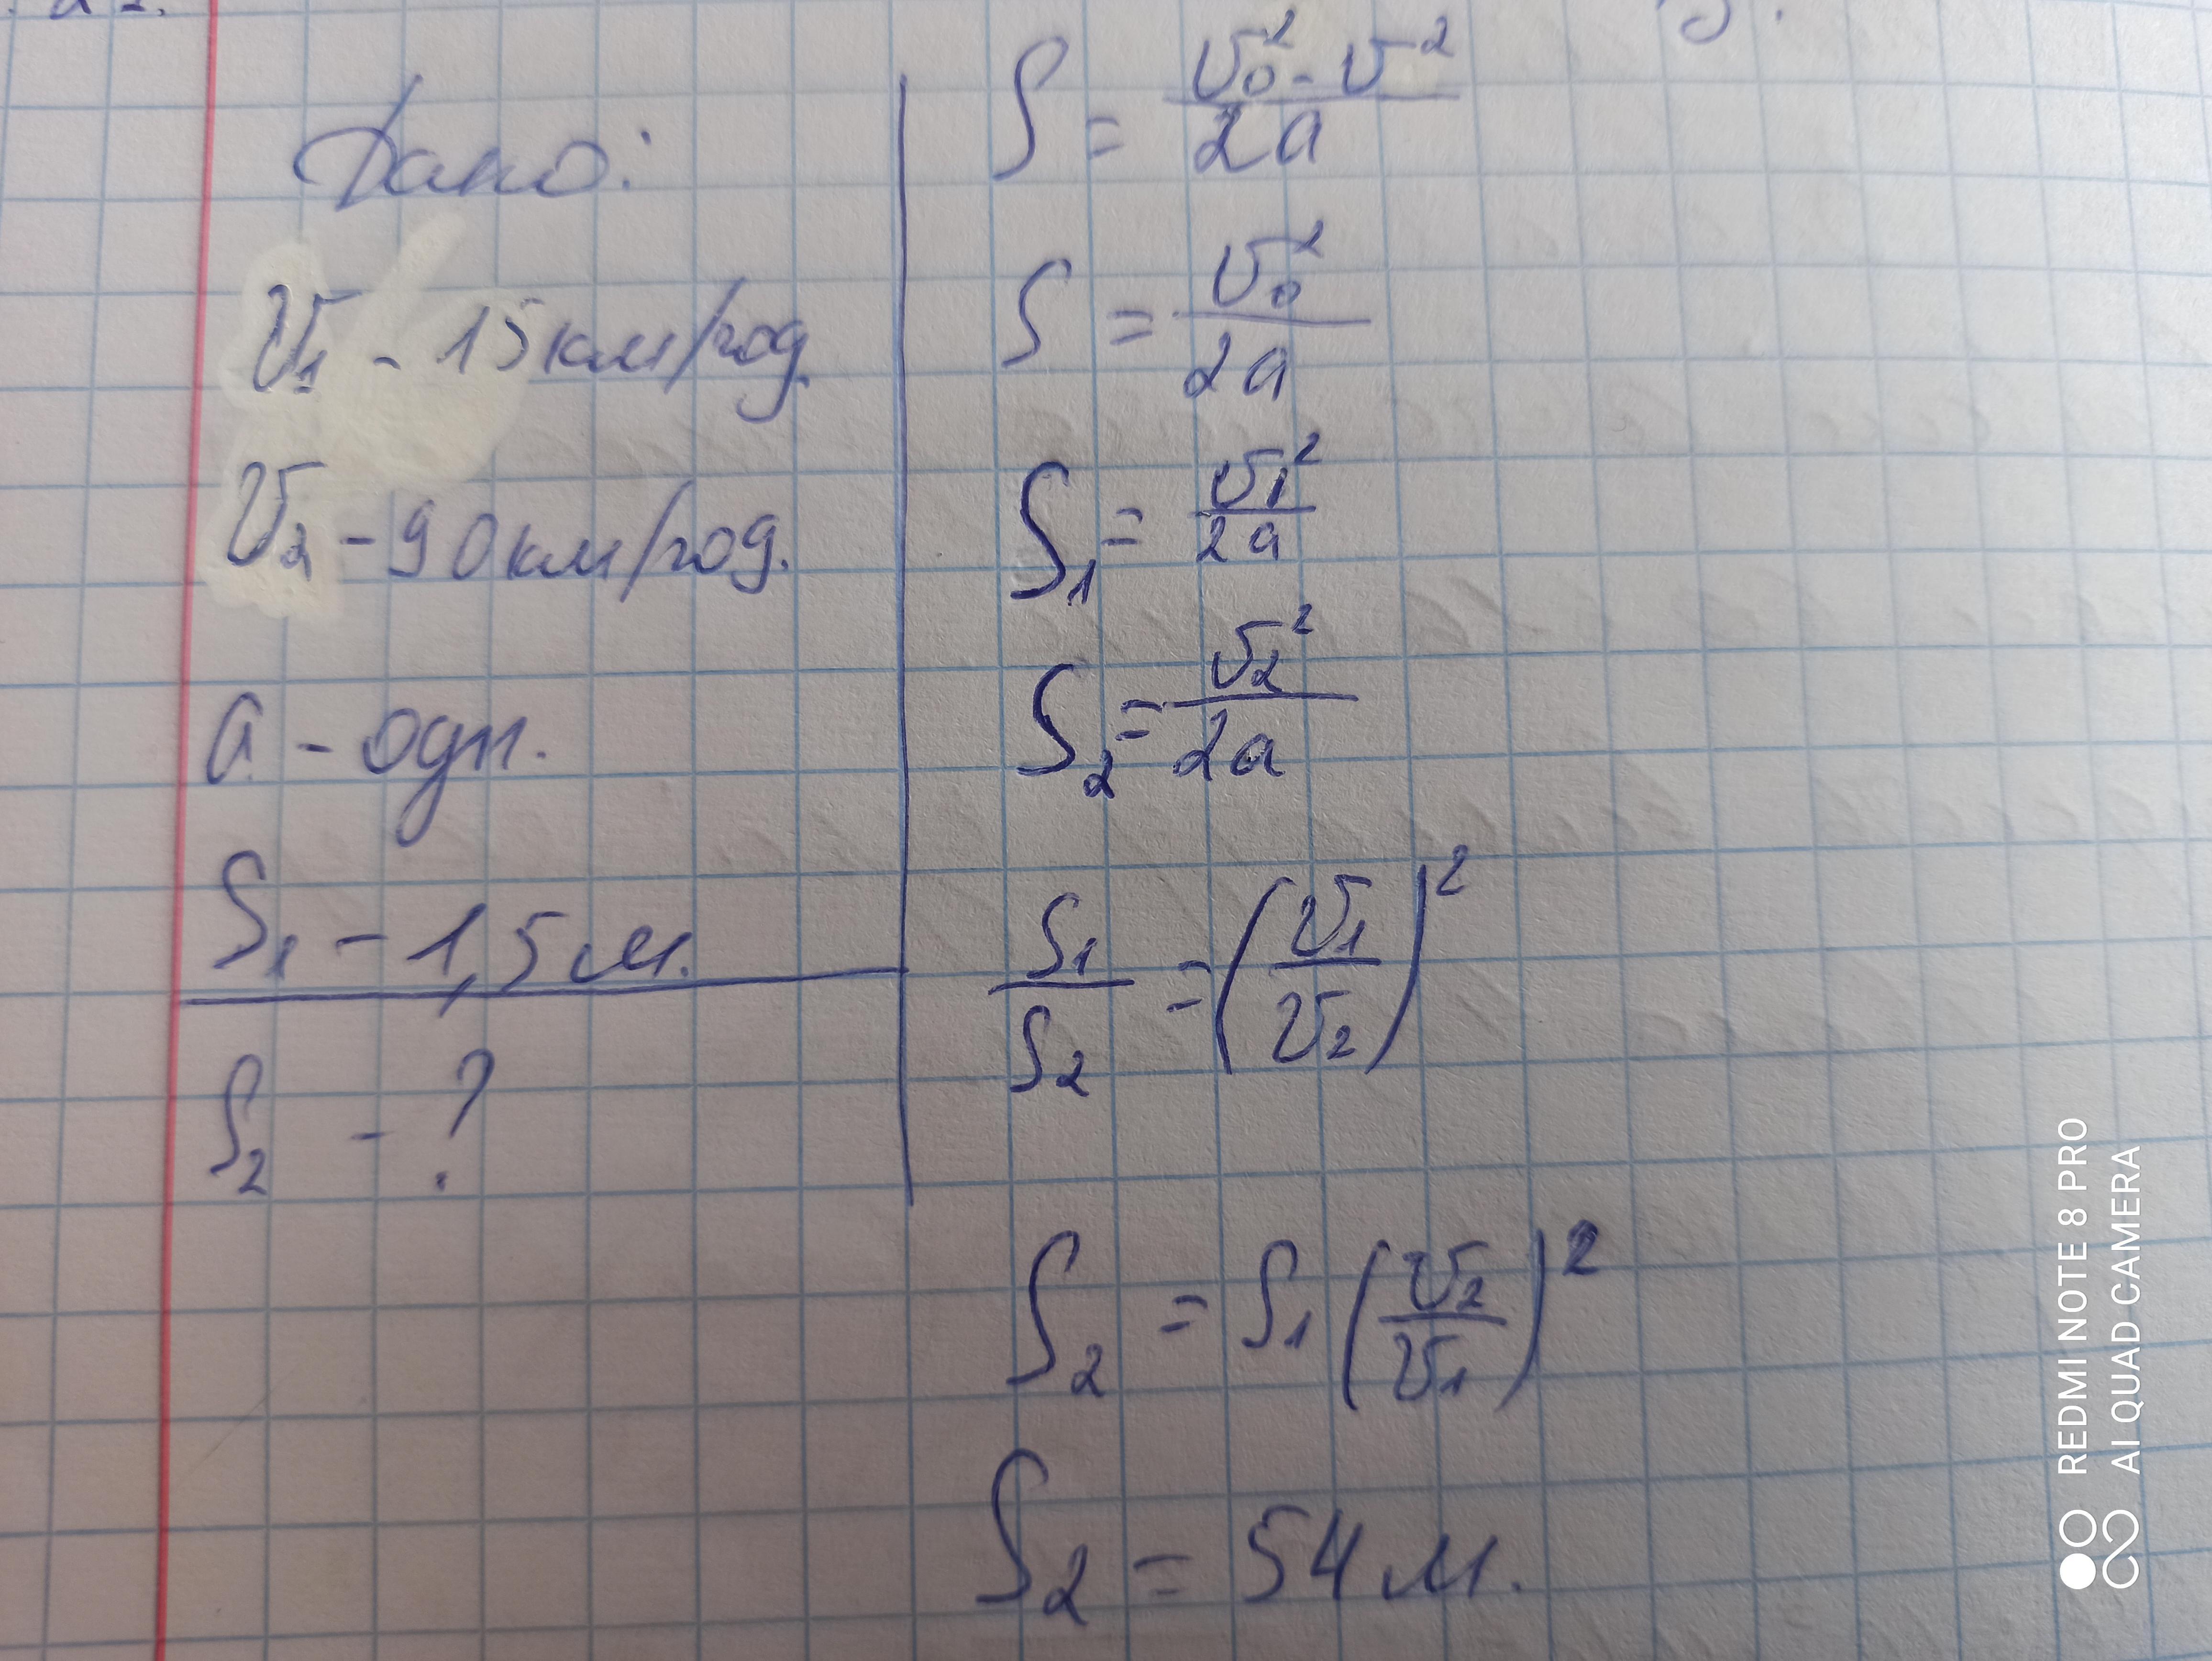 Дано:
V₁ - 15 км/год.
V₂ - 90 км/год.
a - одн.
S₁ - 1,5 м.
S₂ - ?
S = (V₀² - V²) / 2a
S = V₀² / 2a
S₁ = V₁² / 2a
S₂ = V₂² / 2a
S₁ / S₂ = (V₁ / V₂)²
S₂ = S₁ (V₂ / V₁)²
S₂ = 54 м.
REDMI NOTE 8 PRO
AI QUAD CAMERA